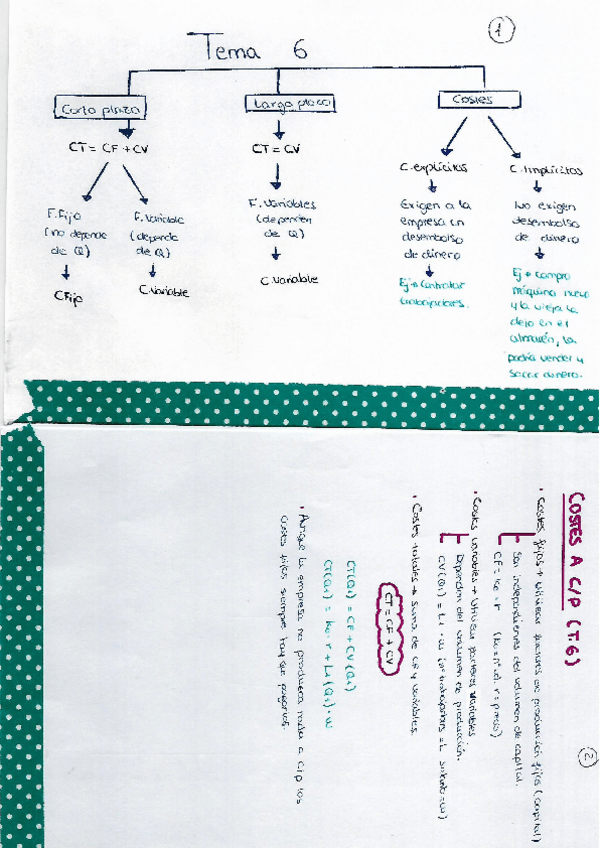 1
Tema 6
Corto plazo
CT = CF + CV
F. Fijo
(no depende
de Q)
CFijo
F. Variable
(depende
de Q)
C.Variable
Largo plazo
CT = CV
F. Variables
(dependen
de Q)
C. Variable
Costes
C. explícitos
Exigen a la
empresa un
desembolso
de dinero
Ej → Contratar
trabajadores.
C. Implícitos
No exigen
desembolso
de dinero
Ej → compro
máquina nueva
y la vieja la
dejo en el
almacén, la
podría vender y
sacar dinero.
2
COSTES A C/P (T.6)
· Costes fijos → Utilizar factores de producción fijos (capital)
Son independientes del volumen de capital.
CF = K0 · r (K0 = r = precio)
· Costes variables → Utilizar factores variables
Dependen del volumen de producción.
CV(Q1) = L1 · w (nº trabajadores = L salario = w)
· Costes totales → suma de CF y variables.
CT = CF + CV
CT(Q1) = CF + CV(Q1)
CT(Q1) = K0 · r + L1(Q1) · w
· Aunque la empresa no produzca nada a C/p los
costes fijos siempre hay que pagarlos.